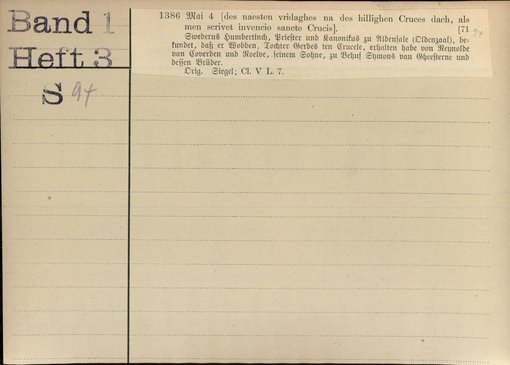 Band 1
Heft 3
S 94
1386 Mai 4 [des naesten vridaghes na des hillighen Cruces dach, als
men scrivet invencio sancte Crucis]. [71 94
Swederus Humbertinch, Priester und Kanonikus zu Aldensale (Oldenzaal), be-
kundet, daß er Wobben, Tochter Gerdes ten Crucele, erhalten habe von Reynolde
van Coverden und Roelve, seinem Sohne, zu Behuf Symons van Gheesterne und
dessen Brüder.
Orig. Siegel; Cl. V L. 7.